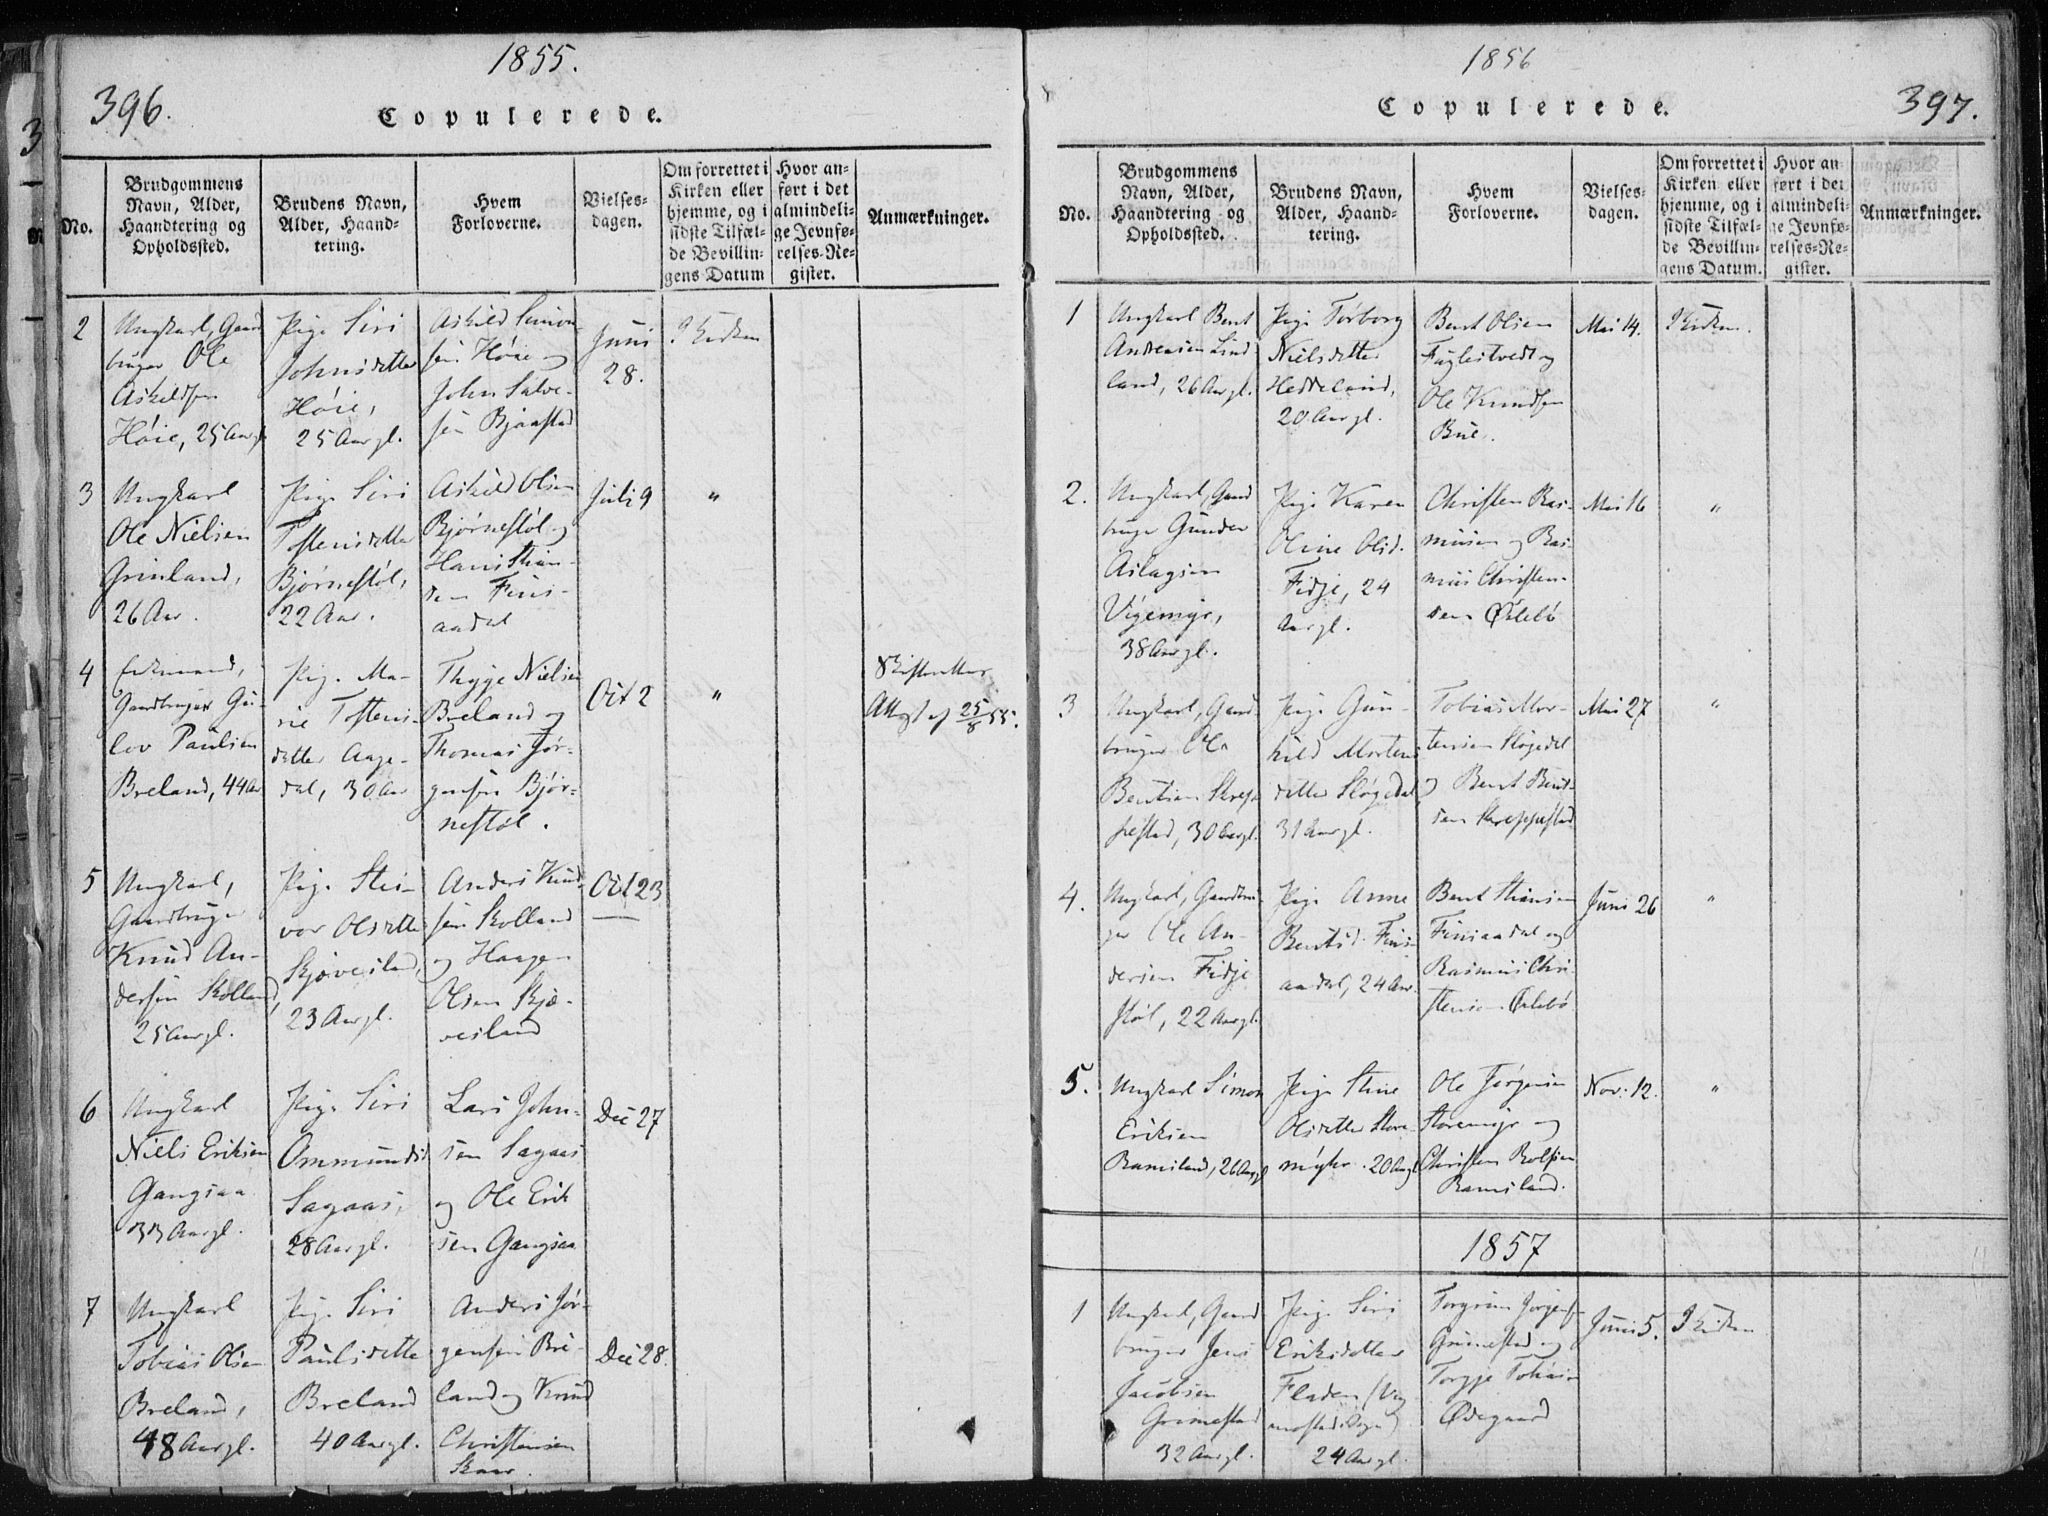 1855.
396.
Copulerede.
No.
Brudgommens
Navn, Alder,
Haandtering og
Opholdssted.
Brudens Navn,
Alder, Haand-
tering.
Hvem
Forloverne.
Vielses-
dagen.
Om forrettet i
Kirken eller
hjemme, og i
sidste Tilfæl-
de Bevillin-
gens Datum
Hvor an-
ført i det
almindeli-
ge Jevnfø-
relses-Re-
gister.
Anmærkninger.
2
Ungkarl, Gaard
bruger Ole
Askildsen
Høie, 25 Aar gl.
Pige Siri
Johnsdatter
Høie,
25 Aar gl.
Askild Simon-
sen Høie og
John Salve-
sen Bjaastad
Juni
28.
I Kirken
3
Ungkarl
Ole Nielsen
Grinland,
26 Aar.
Pige Siri
Tostensdatter
Bjørnestøl,
22 Aar.
Askild Olsen
Bjørnestøl og
Hans Stian-
sen Fins-
aadal
Juli 9
"
4
Enkemand,
Gaardbruger Gu-
lov Paulsen
Breland, 44 Aar
Pige Ma-
rie Tostens-
datter Aage-
dal, 30 Aar
Thygje Nielsen
Breland og
Thomas Jør-
gensen Bjør-
nestøl.
Oct 2
"
Skifteretten
Attest af 25/8 55.
5
Ungkarl,
Gaardbruger
Knud An-
dersen Skolland,
25 Aar gl.
Pige Stei-
vor Olsdatter
Skjævesland,
23 Aar gl.
Anders Knud-
sen Skolland
og Haagen
Olsen Skjæ-
vesland
Oct 23
6
Ungkarl
Niels Eriksen
Gangsaa
33 Aar gl.
Pige Siri
Ommundsd.
Sagaas,
28 Aar gl.
Lars John-
sen Sagaas
og Ole Erik
sen Gangsaa
Dec 27
7
Ungkarl
Tobias Olsen
Breland,
48 Aar gl.
Pige Siri
Paulsdatter
Breland
40 Aar gl.
Anders Jør-
gensen Bre-
land og Knud
Christensen
Skaar.
Dec 28.
1856
397.
Copulerede.
No.
Brudgommens
Navn, Alder,
Haandtering og
Opholdssted.
Brudens Navn,
Alder, Haand-
tering.
Hvem
Forloverne.
Vielses-
dagen.
Om forrettet i
Kirken eller
hjemme, og i
sidste Tilfæl-
de Bevillin-
gens Datum.
Hvor an-
ført i det
almindeli-
ge Jevnfø-
relses-Re-
gister.
Anmærkninger.
1
Ungkarl Bent
Andersen Lind
land, 26 Aar gl.
Pige Torborg
Nielsdatter
Heddeland,
20 Aar gl.
Bent Olsen
Fuglestvedt og
Ole Knudsen
Bue.
Mai 14.
I Kirken.
2.
Ungkarl, Gaard
bruger Gunder
Aslagsen
Vigemyr,
38 Aar gl.
Pige Karen
Oline Olsd.
Fidje, 24
Aar gl.
Christen Ras-
musen og Ras-
mus Christen-
sen Øslebø
Mai 16
"
3
Ungkarl, Gaard-
bruger Ole
Bentsen Skrep-
pestad, 30 Aar gl.
Pige Gun-
hild Mortens
datter Sløgedal
31 Aar gl.
Tobias Mor-
tensen Sløgedal
og Bent Bent-
sen Skreppestad
Mai 27
"
4.
Ungkarl, Gaardbru-
ger Ole An-
dersen Fidje
støl, 22 Aar gl.
Pige Anne
Bentsd. Fins-
aadal, 24 Aar.
Bent Stiansen
Finsaadal og
Rasmus Chri-
stensen Øslebø
Juni 26
"
5.
Ungkarl Simon
Eriksen
Ramsland, 26 Aar gl
Pige Stine
Olsdatter Store-
myhr. 20 Aar gl
Ole Jørgensen
Storemyr og
Christen Rolfsen
Ramsland.
Nov. 12.
"
1857
1
Ungkarl, Gaard
bruger Jens
Jacobsen
Grimestad
32 Aar gl.
Pige Siri
Eriksdatter
Fladen (Vig
mostad Sogn)
24 Aar gl.
Torgrim Jørgens.
Grimestad og
Torgje Tobias
Ødegaard
Juni 5.
I Kirken